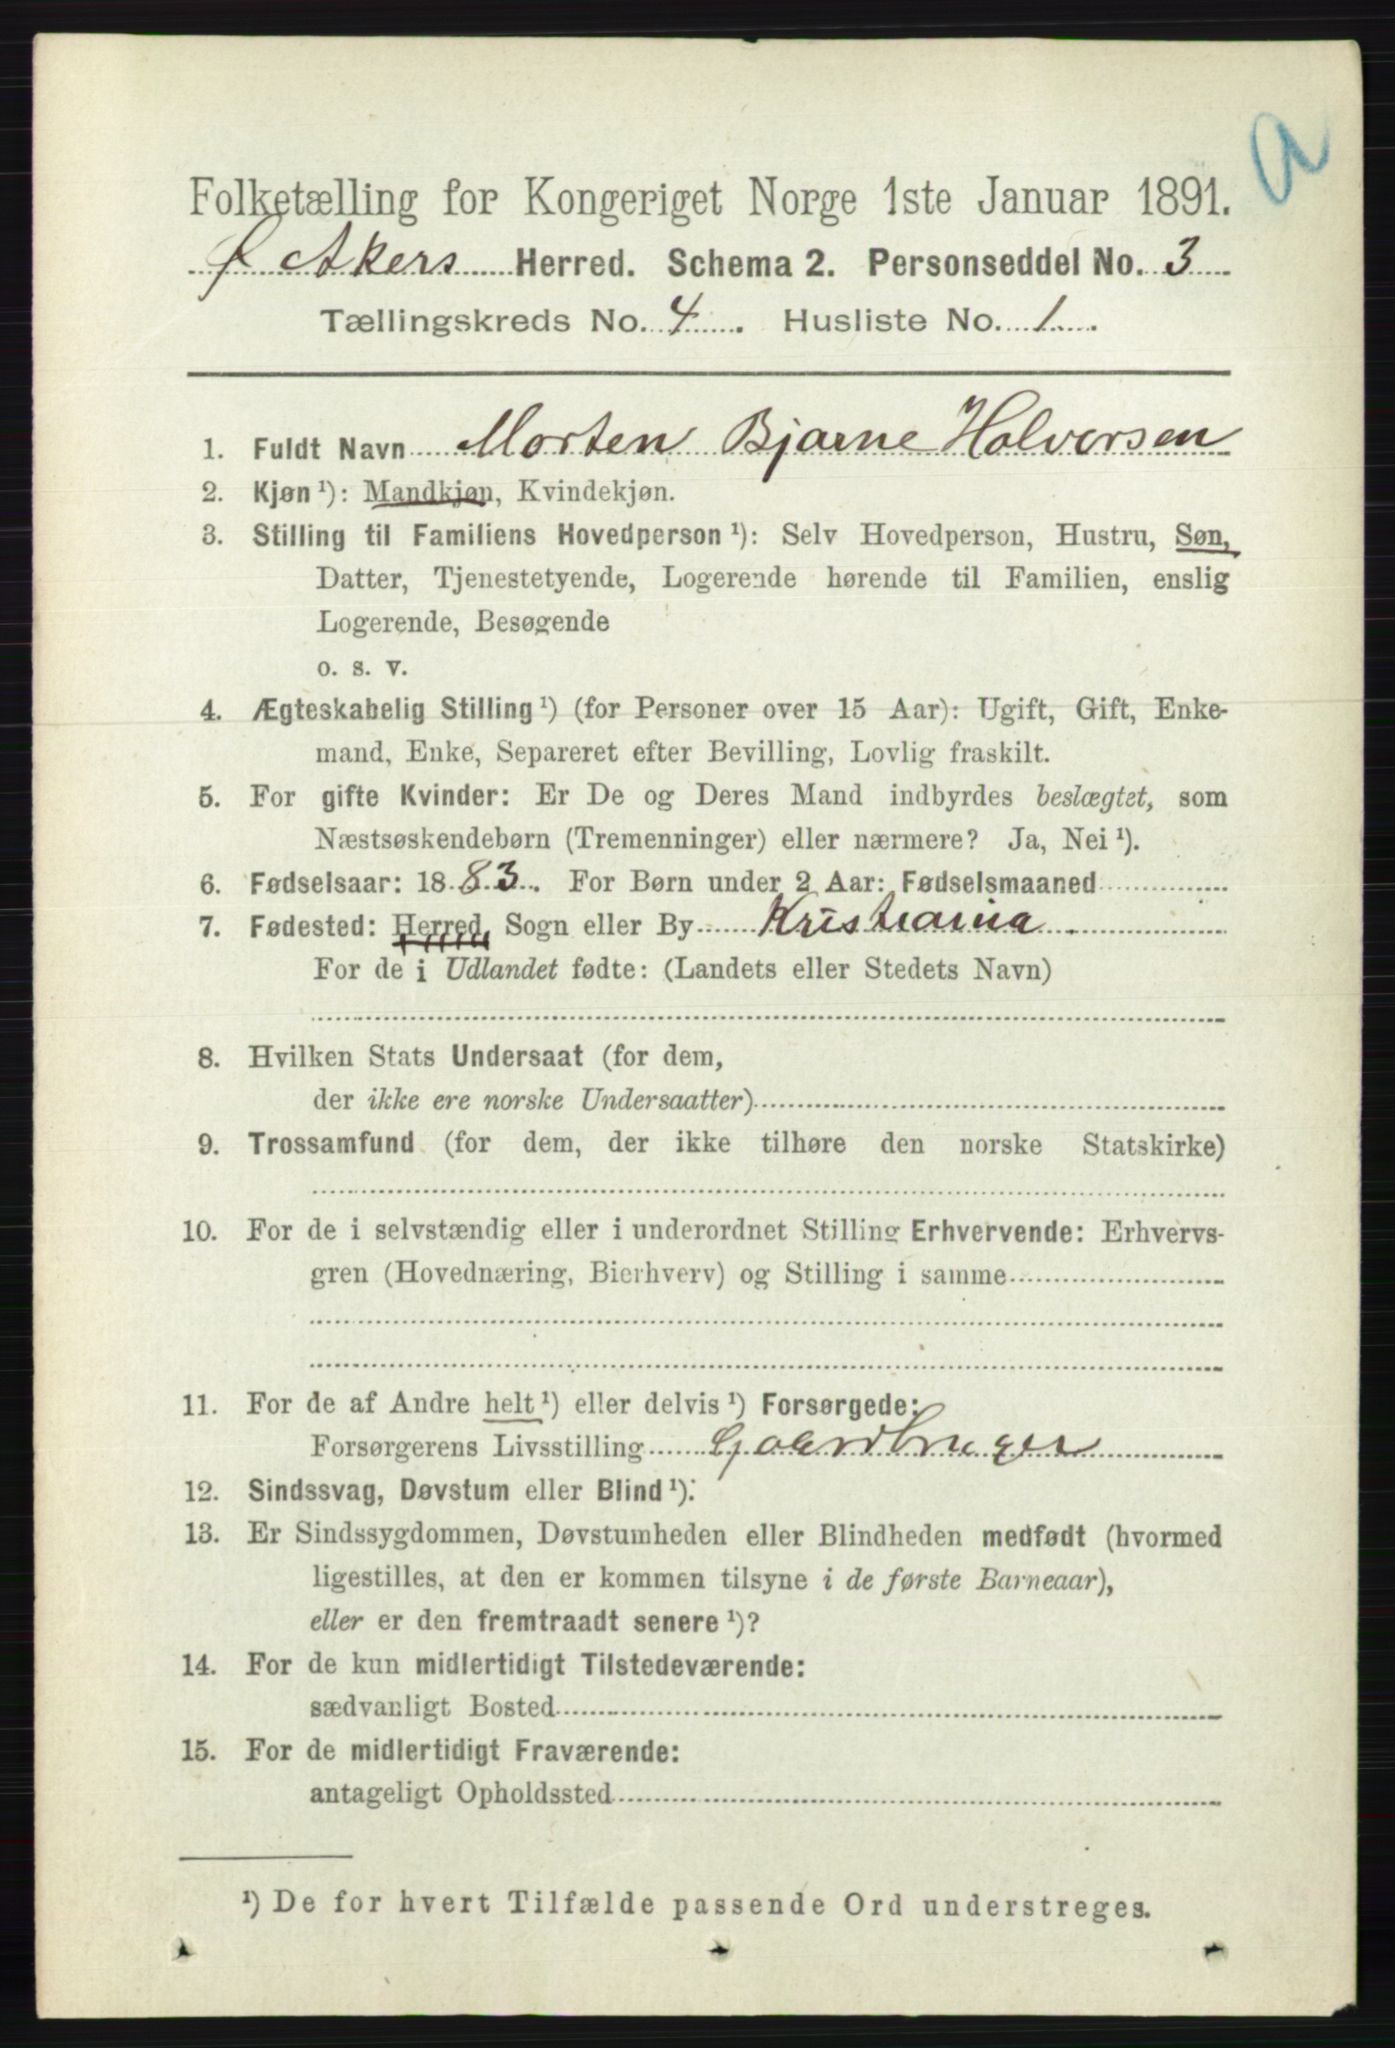 a
Folketælling for Kongeriget Norge 1ste Januar 1891.
Ø Akers Herred. Schema 2. Personseddel No. 3
Tællingskreds No. 4. Husliste No. 1.
1. Fuldt Navn Morten Bjarne Halvorsen
2. Kjøn ¹): Mandkjøn, Kvindekjøn.
3. Stilling til Familiens Hovedperson ¹): Selv Hovedperson, Hustru, Søn,
Datter, Tjenestetyende, Logerende hørende til Familien, enslig
Logerende, Besøgende
o. s. v.
4. Ægteskabelig Stilling ¹) (for Personer over 15 Aar): Ugift, Gift, Enke-
mand, Enke, Separeret efter Bevilling, Lovlig fraskilt.
5. For gifte Kvinder: Er De og Deres Mand indbyrdes beslægtet, som
Næstsøskendebørn (Tremenninger) eller nærmere? Ja, Nei ¹).
6. Fødselsaar: 1883. For Børn under 2 Aar: Fødselsmaaned
7. Fødested: Herred, Sogn eller By Kristiania
For de i Udlandet fødte: (Landets eller Stedets Navn)
8. Hvilken Stats Undersaat (for dem,
der ikke ere norske Undersaatter)
9. Trossamfund (for dem, der ikke tilhøre den norske Statskirke)
10. For de i selvstændig eller i underordnet Stilling Erhvervende: Erhvervs-
gren (Hovednæring, Bierhverv) og Stilling i samme
11. For de af Andre helt ¹) eller delvis ¹) Forsørgede:
Forsørgerens Livsstilling Gaardbruger
12. Sindssvag, Døvstum eller Blind ¹).
13. Er Sindssygdommen, Døvstumheden eller Blindheden medfødt (hvormed
ligestilles, at den er kommen tilsyne i de første Barneaar),
eller er den fremtraadt senere ¹)?
14. For de kun midlertidigt Tilstedeværende:
sædvanligt Bosted
15. For de midlertidigt Fraværende:
antageligt Opholdssted
¹) De for hvert Tilfælde passende Ord understreges.